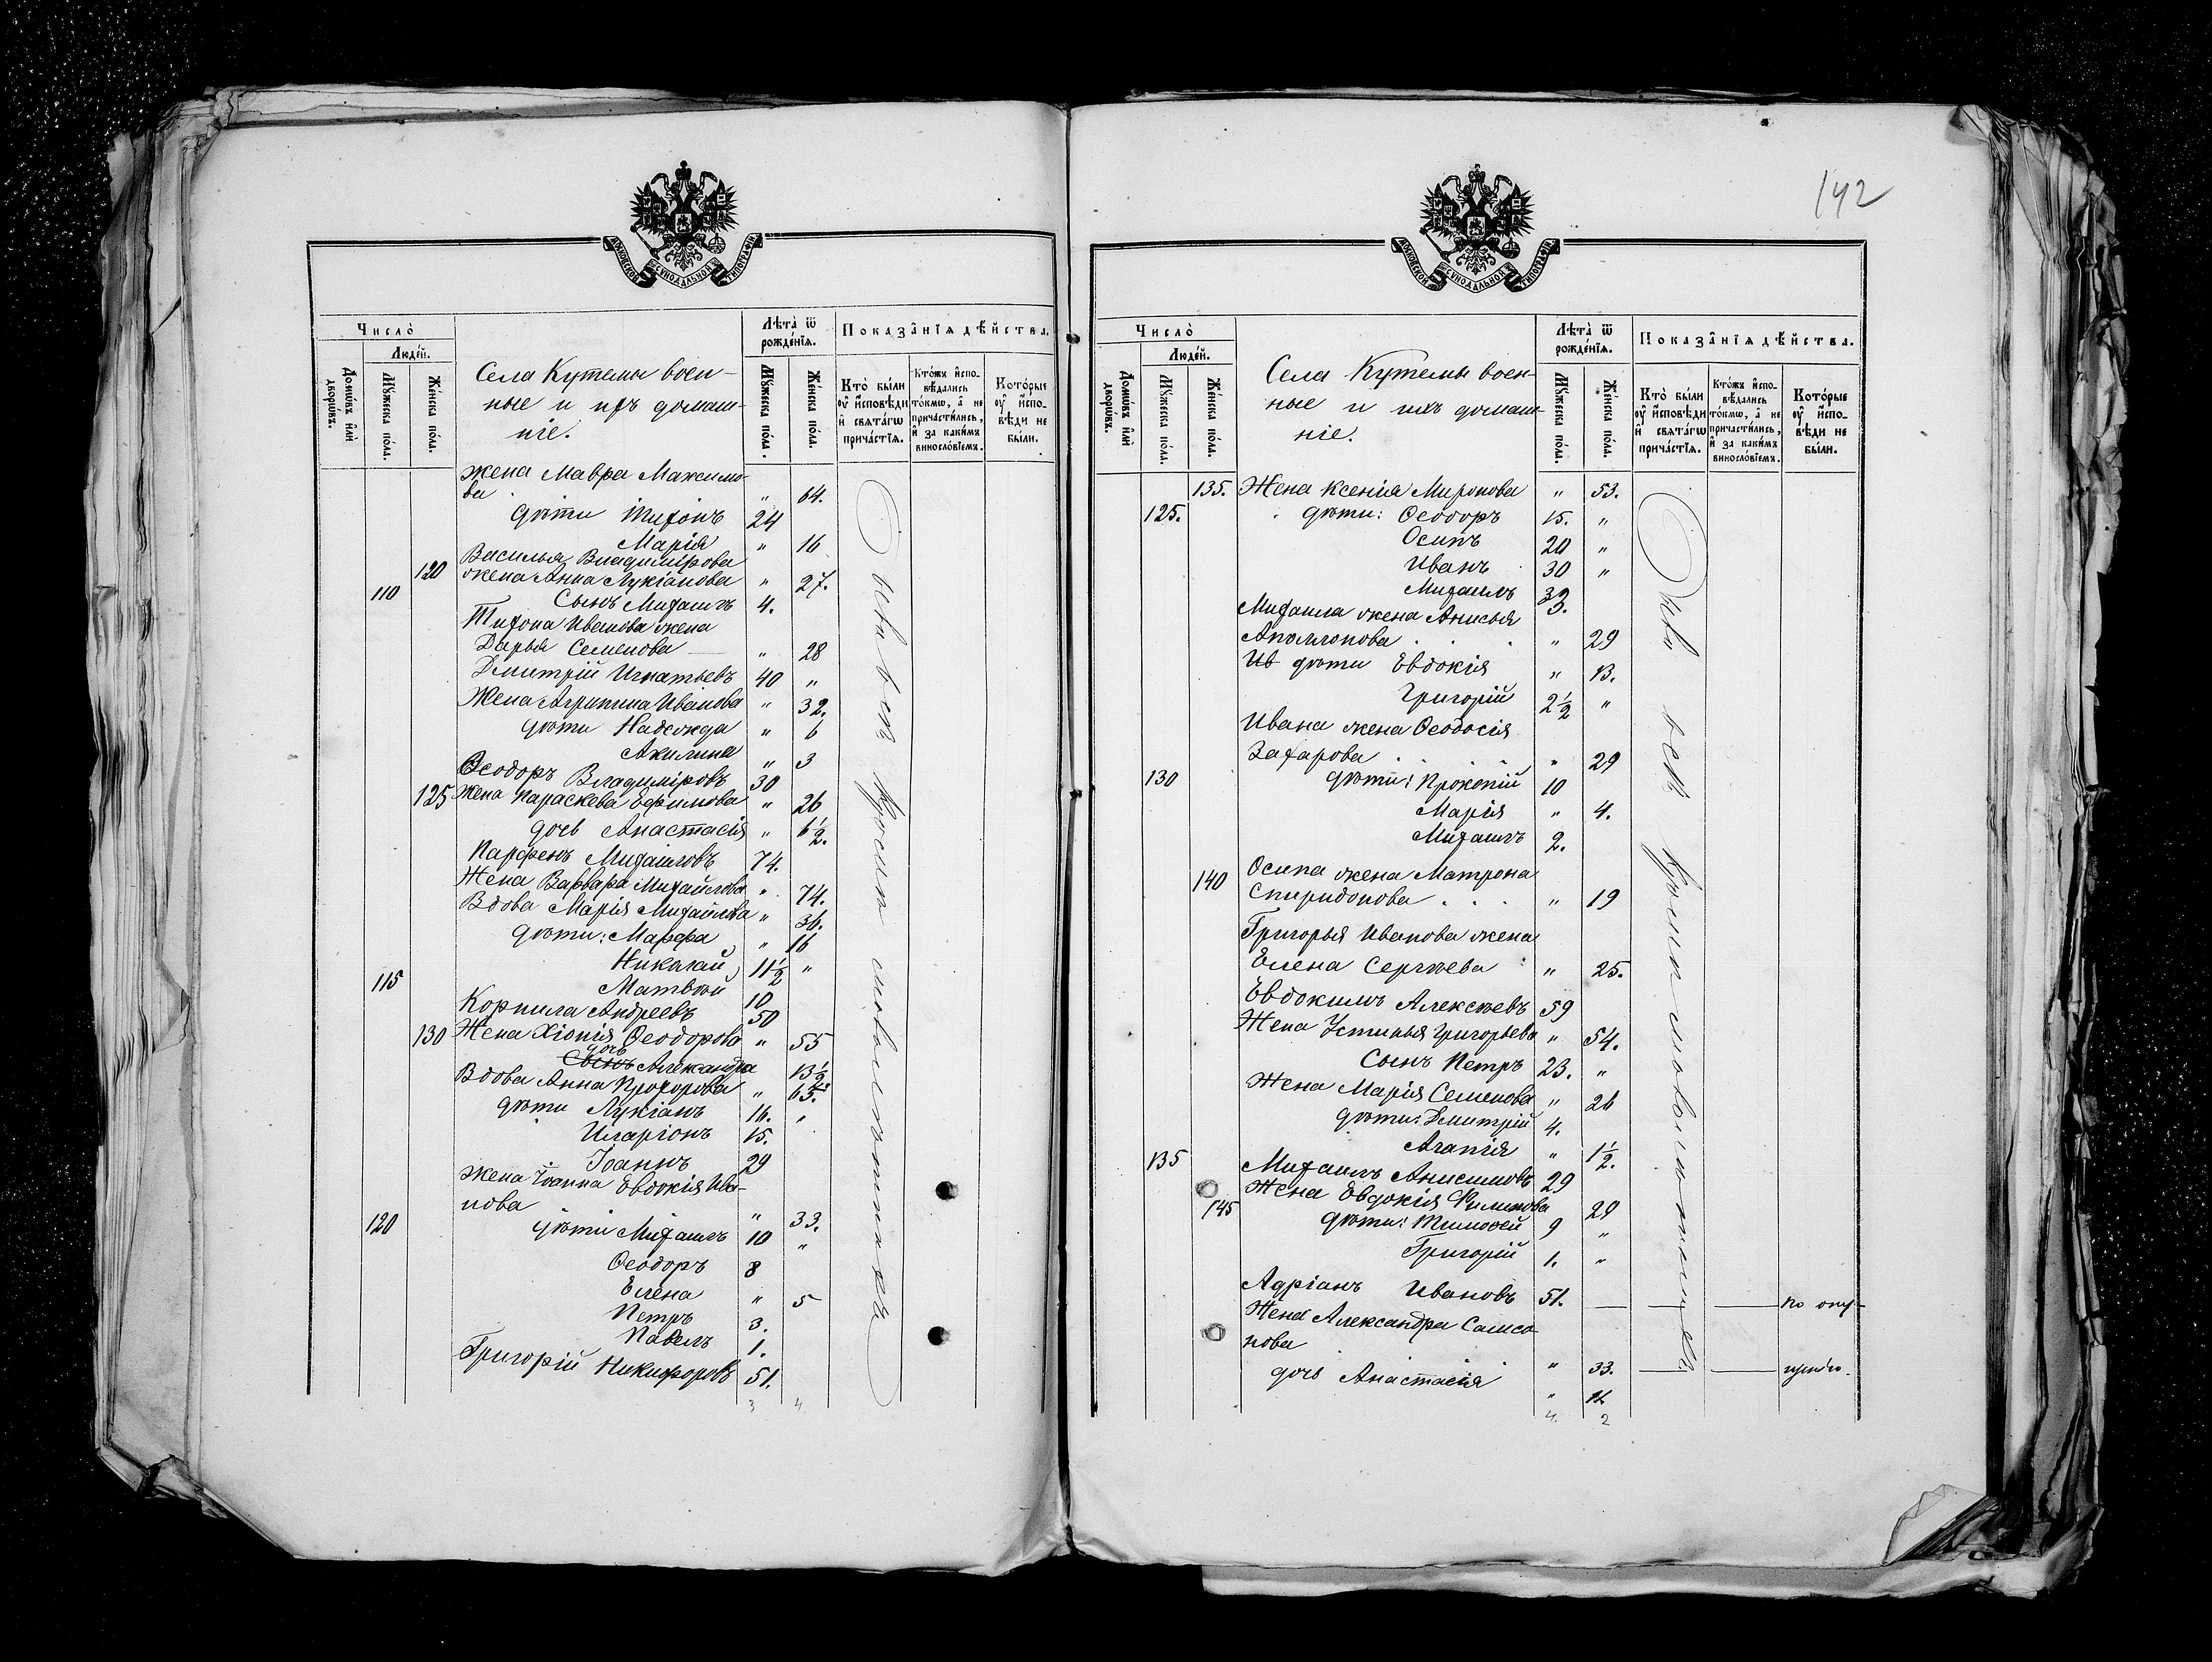 МОСКОВСКОЙ СѴНОДАЛЬНОЙ ТИПОГРАФІИ
Число̀
Люде́й.
Домѡ́въ и҆лѝ дворѡ́въ.
Мꙋ́жеска по́ла.
Же́нска по́ла.
Села Кутемы воен-
ные и ихъ домаш-
ніе.
Лѣта̀ ѿ рожде́нїѧ.
Мꙋ́жеска по́ла.
Же́нска по́ла.
Показа̑нїѧ дѣ́йства.
Кто̀ бы́ли оу҆ и҆сповѣ́ди и҆ свѧта́гѡ прича́стїѧ.
Кто́жъ и҆сповѣ́дались то́кмѡ, а҆ не причасти́лись, и҆ за каки́мъ винослО́вїемъ.
Кото́рые оу҆ и҆сповѣ́ди не бы́ли.
жена Мавра Максимо-
ва " 64.
дѣти Тихонъ 24
Марія " 16
Василья Владимірова
120 жена Анна Лукіанова " 27.
110 Сынъ Михаилъ 4.
Тихона Иванова жена
Дарья Семенова — " 28
Дмитрій Игнатьевъ 40 "
Жена Агрипина Иванова " 32.
дѣти Надежда " 6
Акилина " 3
Ѳеодоръ Владиміровъ 30
125 Жена Параскева Ефимова " 26
дочь Анастасія " 6½.
Парфенъ Михайловъ 74.
Жена Варвара Михайлова " 74.
Вдова Марія Михайлова " 36.
дѣти: Марфа " 16
Николай 11½ "
115 Матвѣй 10
Корнила Андреевъ 50
130 Жена Хіонія Ѳеодорова " 55
дочь
Сынъ Александра 13½
Вдова Анна Прохорова " 63.
дѣти Лукіанъ 16. "
Иларіонъ 15.
Іоаннъ 29
Жена Іоанна Евдокія Ива-
нова " 33.
120 дѣти Михаилъ 10 "
Ѳеодоръ 8
Елена " 5
Петръ 3.
Павелъ 1.
Григорій Никифоровъ 51.
3 4.
142
МОСКОВСКОЙ СѴНОДАЛЬНОЙ ТИПОГРАФІИ
Число̀
Люде́й.
Домѡ́въ и҆лѝ дворѡ́въ.
Мꙋ́жеска по́ла.
Же́нска по́ла.
Села Кутемы воен-
ные и ихъ домаш-
ніе.
Лѣта̀ ѿ рожде́нїѧ.
Мꙋ́жеска по́ла.
Же́нска по́ла.
Показа̑нїѧ дѣ́йства.
Кто̀ бы́ли оу҆ и҆сповѣ́ди и҆ свѧта́гѡ прича́стїѧ.
Кто́жъ и҆сповѣ́дались то́кмѡ, а҆ не причасти́лись, и҆ за каки́мъ винослО́вїемъ.
Кото́рые оу҆ и҆сповѣ́ди не бы́ли.
135. Жена Ксенія Миронова " 53.
125. дѣти: Ѳеодоръ 15. "
Осипъ 20 "
Иванъ 30 "
Михаилъ 33.
Михаила жена Анисья
Аполлонова . . . " 29
Ив дѣти Евдокія " 13.
Григорій 2½ "
Ивана жена Ѳеодосія
Захарова . . . . " 29
130 дѣти: Прокопій 10
Марія " 4.
Михаилъ 2.
Осипа жена Матрона
140 Спиридонова . . . " 19
Григорья Иванова жена
Елена Сергѣева " 25.
Евдокимъ Алексѣевъ 59
Жена Устинья Григорьева " 54.
Сынъ Петръ 23. "
Жена Марія Семенова " 26
дѣти: Дмитрій 4.
Агапія " 1½.
135 Михаилъ Анисимовъ 29
145 Жена Евдокія Филипова 29
дѣти: Тимоѳей 9 "
Григорій 1. "
Адріанъ Ивановъ 51. — — — по опу-
Жена Александра Самсо-
нова " 33. — — щенію.
дочь Анастасія " 12
4. 2